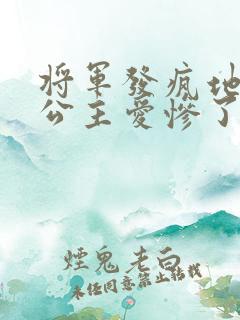 將軍發瘋地
公主愛慘了
煙鬼老白
未經同意禁止轉載